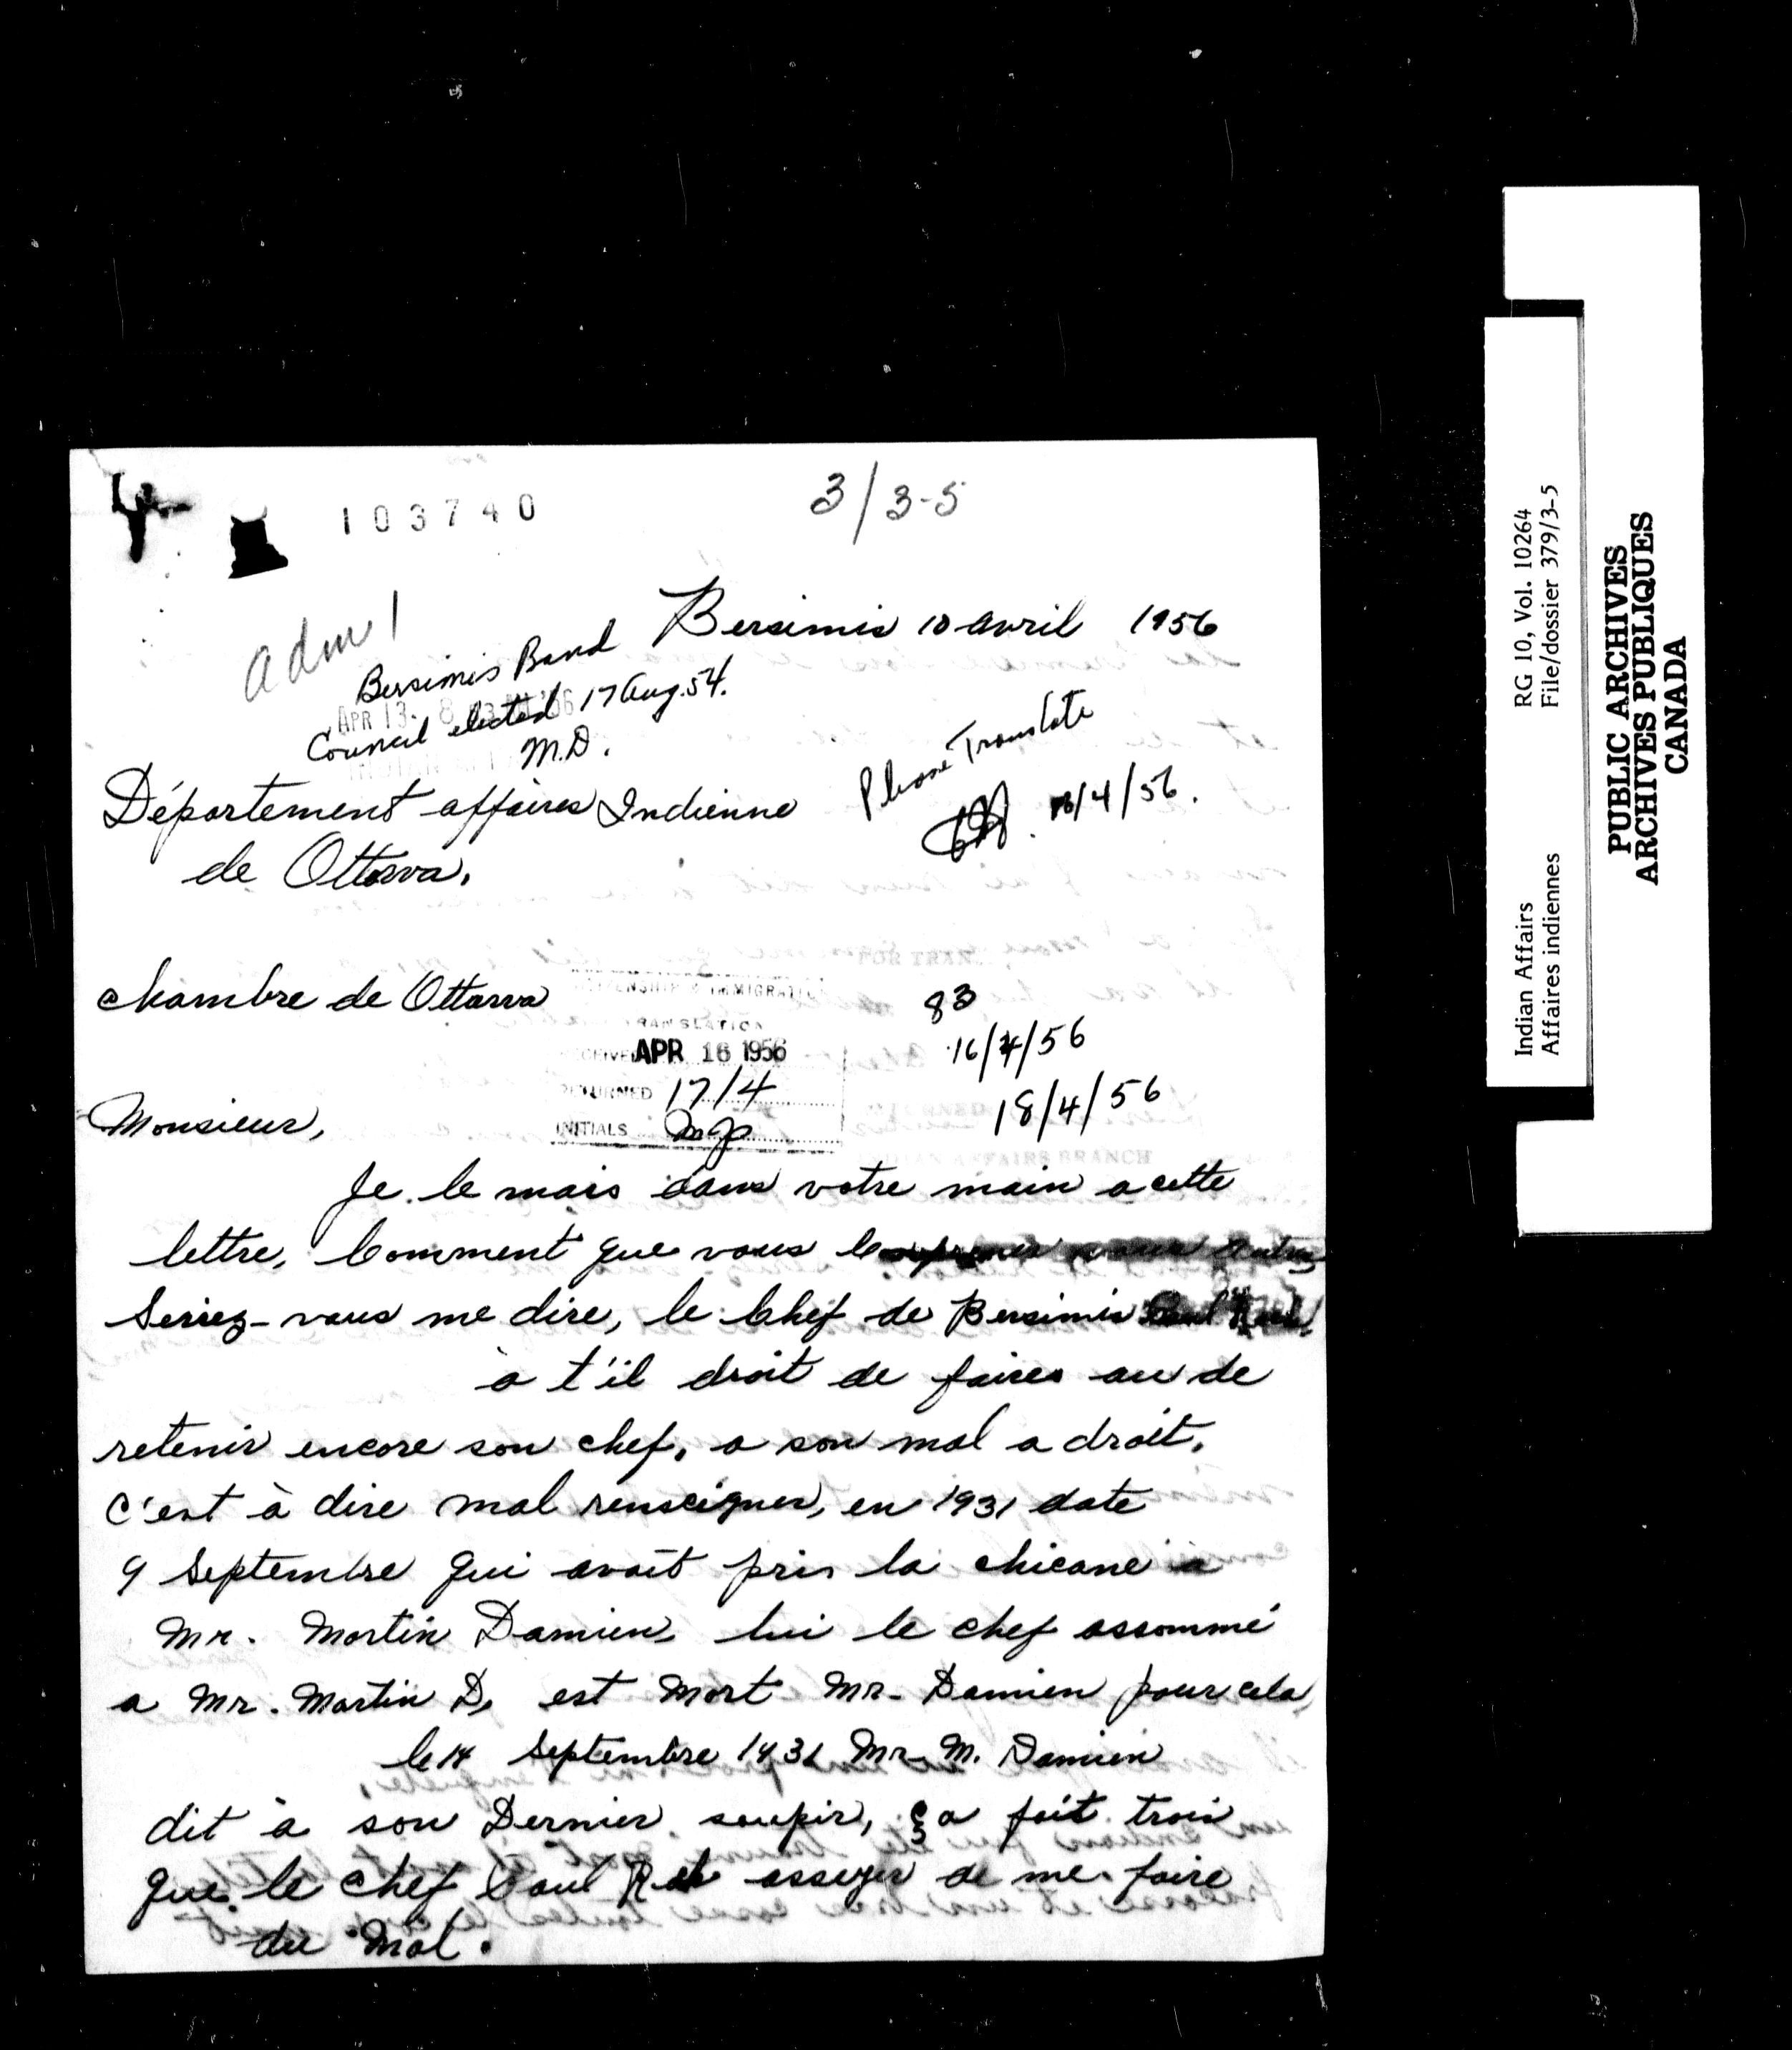 103740
3/3-5
adm 1
Bersimis 10 avril 1956
Bersimis Band
Council elected 17 Aug. 54.
M.D.
APR 13
Please Translate
/4/56.
Département affaires Indienne
de Ottawa.
FOR TRAN
chambre de Ottawa
IMMIGRATI
TRANSLATION
RECEIVED APR 16 1956
RETURNED 17/4
INITIALS
83
16/4/56
18/4/56
AFFAIRS BRANCH
Monsieur,
Je le mais dans votre main a cette
lettre, Comment que vous
Seriez-vous me dire, le Chef de Bersimis
à t'il droit de faires au de
retenir encore son chef, a son mal a droit.
C'est à dire mal renseigner, en 1931 date
9 Septembre qui avait pris la chicane a
Mr. Martin Damien, lui le chef assommé
a Mr. Martin D, est mort Mr- Damien pour cela,
le 14 Septembre 1931 Mr- M. Damien
dit à son Dernier soupir, ça fait trois
que le chef Paul assayer de me faire
du mal.
Indian Affairs RG 10, Vol. 10264
Affaires indiennes File/dossier 379/3-5
PUBLIC ARCHIVES
ARCHIVES PUBLIQUES
CANADA